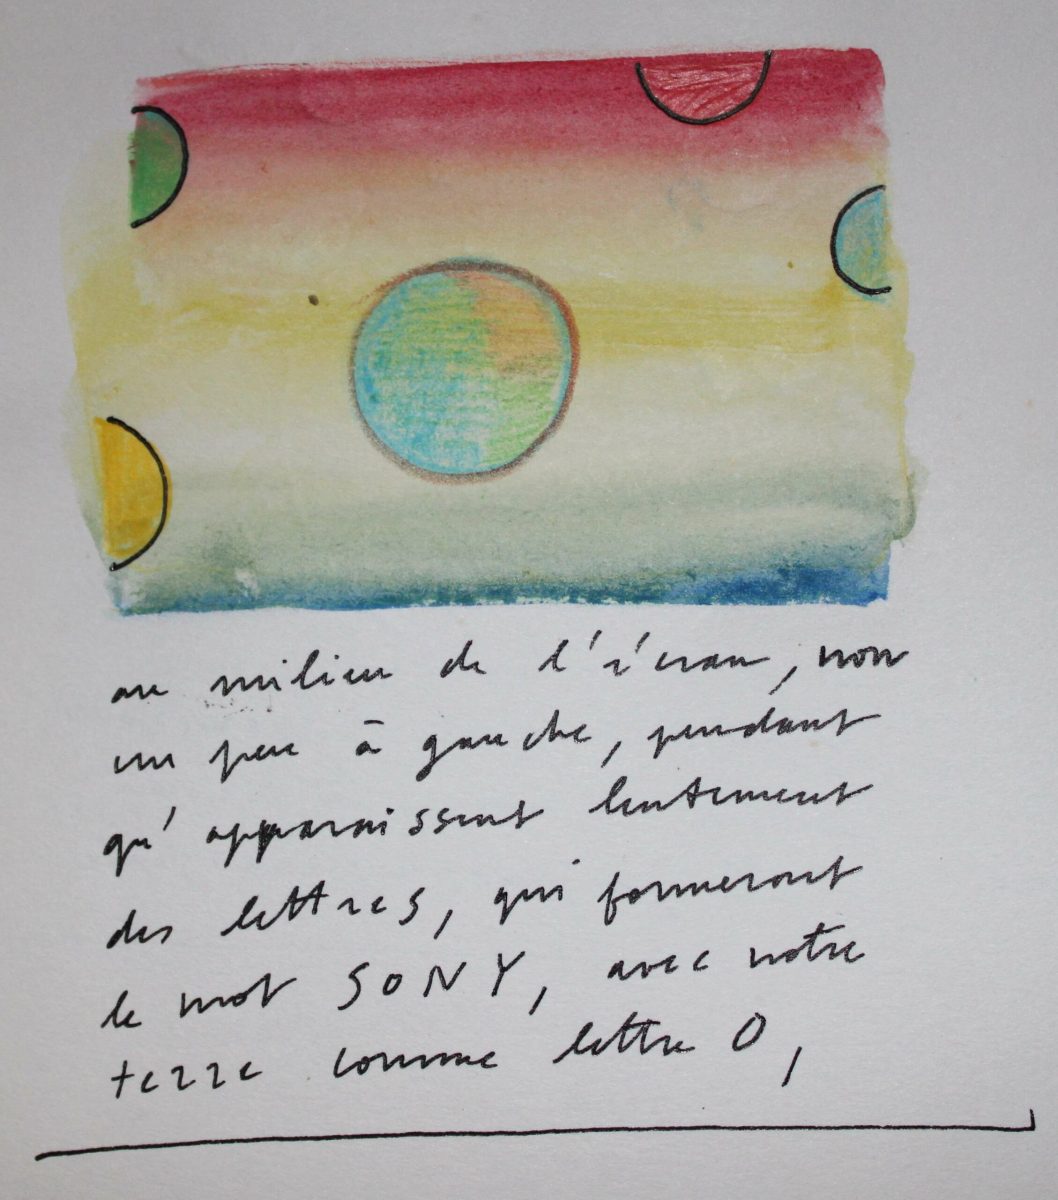 au milieu de l'écran, non
un peu à gauche, pendant
qu'apparaissent lentement
des lettres, qui formeront
le mot SONY, avec notre
terre comme lettre O,